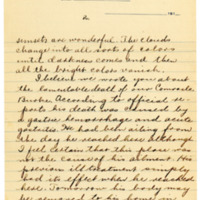 2
191
sunsets are wonderful. The clouds
change into all sorts of colors
until darkness comes and then
all the bright colors vanish.
I believe we wrote you about
the lamentable death of our Comrade
Burke. According to official re-
ports his death was caused by
a gastric hemorrhage and acute
gastritis. He had been ailing from
the day he reached here although
I feel certain that this place was
not the cause of his ailment. His
previous ill treatment simply
had its effect when he reached
here. Tomorrow his body may
be removed to his home in